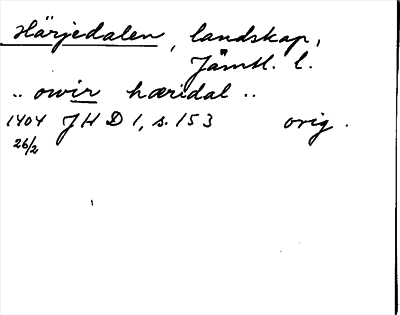 Härjedalen, landskap,
Jämtl. l.
.. owir hæridal ..
1404 JHD 1, s. 153 orig.
26/2